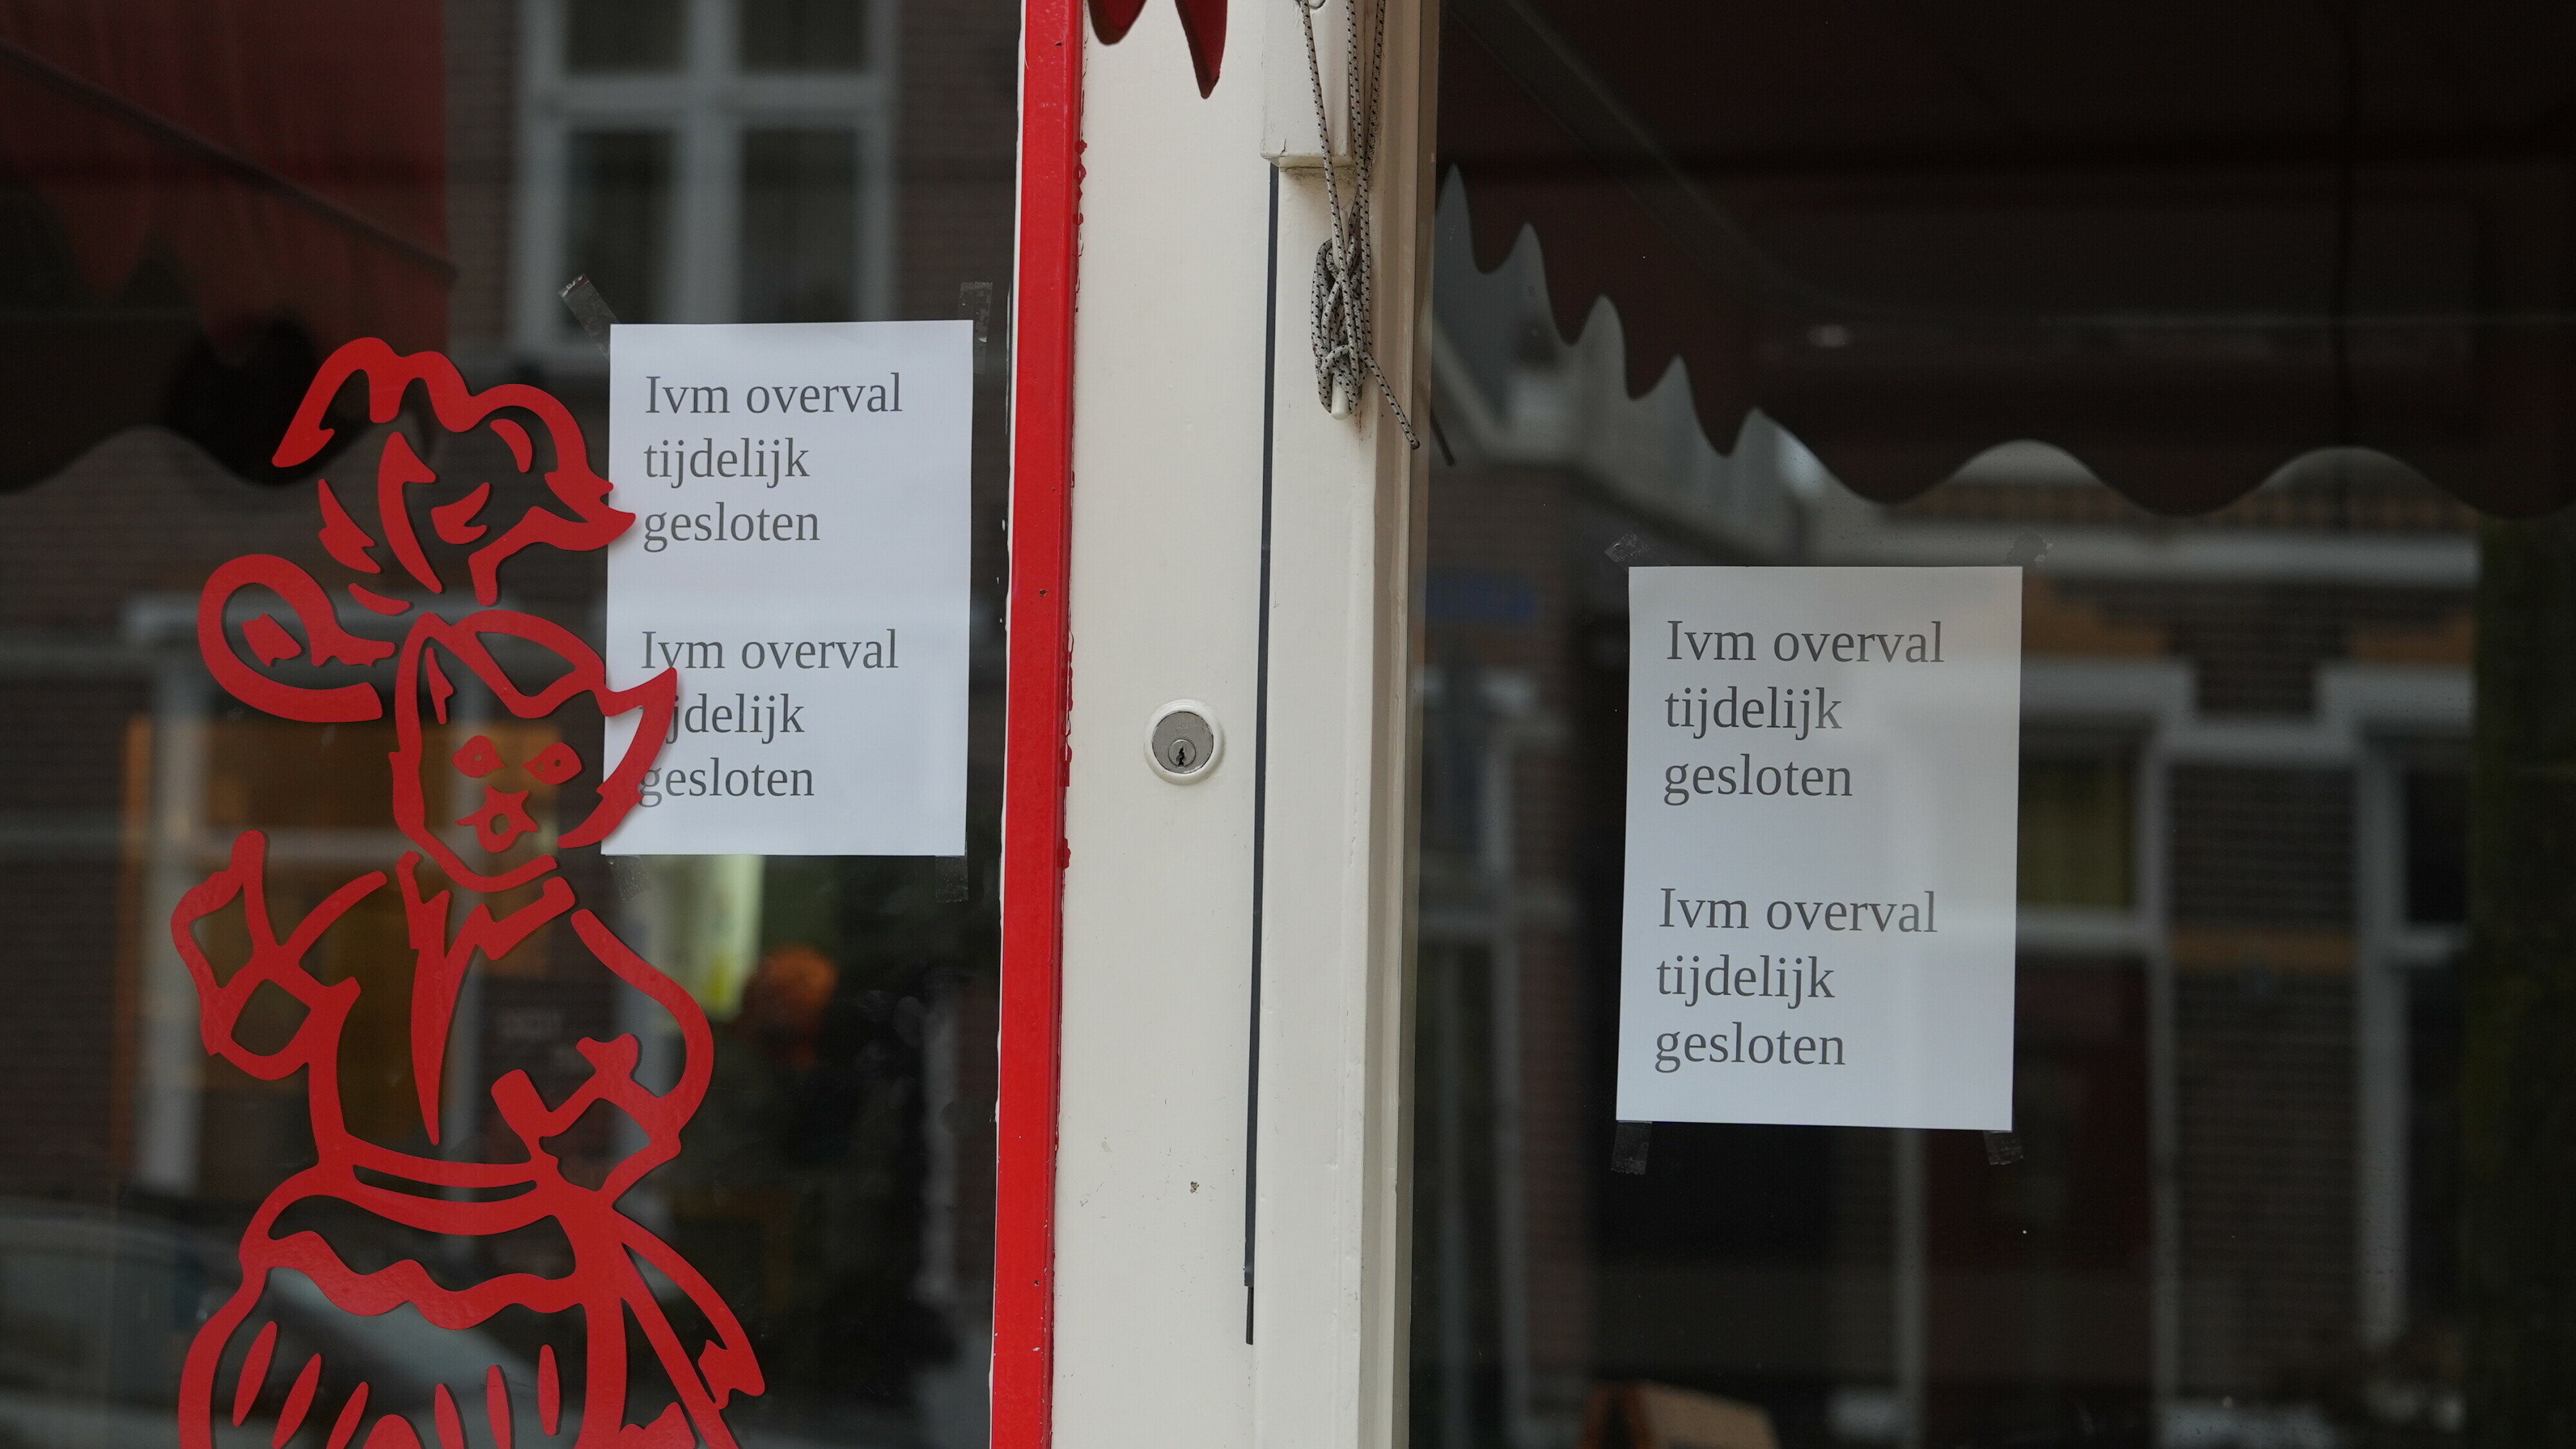 Ivm overval
tijdelijk
gesloten
Ivm overval
tijdelijk
gesloten
Ivm overval
tijdelijk
gesloten
Ivm overval
tijdelijk
gesloten